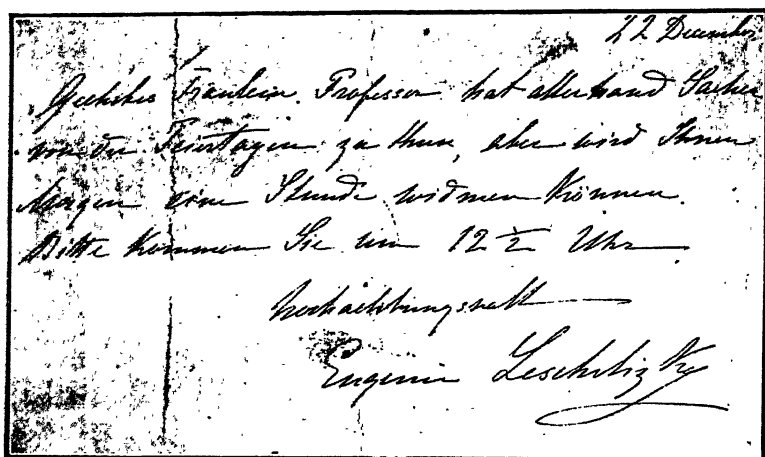 22 December
Geehrtes Fräulein. Professor hat allerhand Sachen
vor den Feiertagen zu thun, aber wird Ihnen
Morgen eine Stunde widmen können.
Bitte kommen Sie um 12 1/2 Uhr
hochachtungsvoll
Eugenie Leschetizky